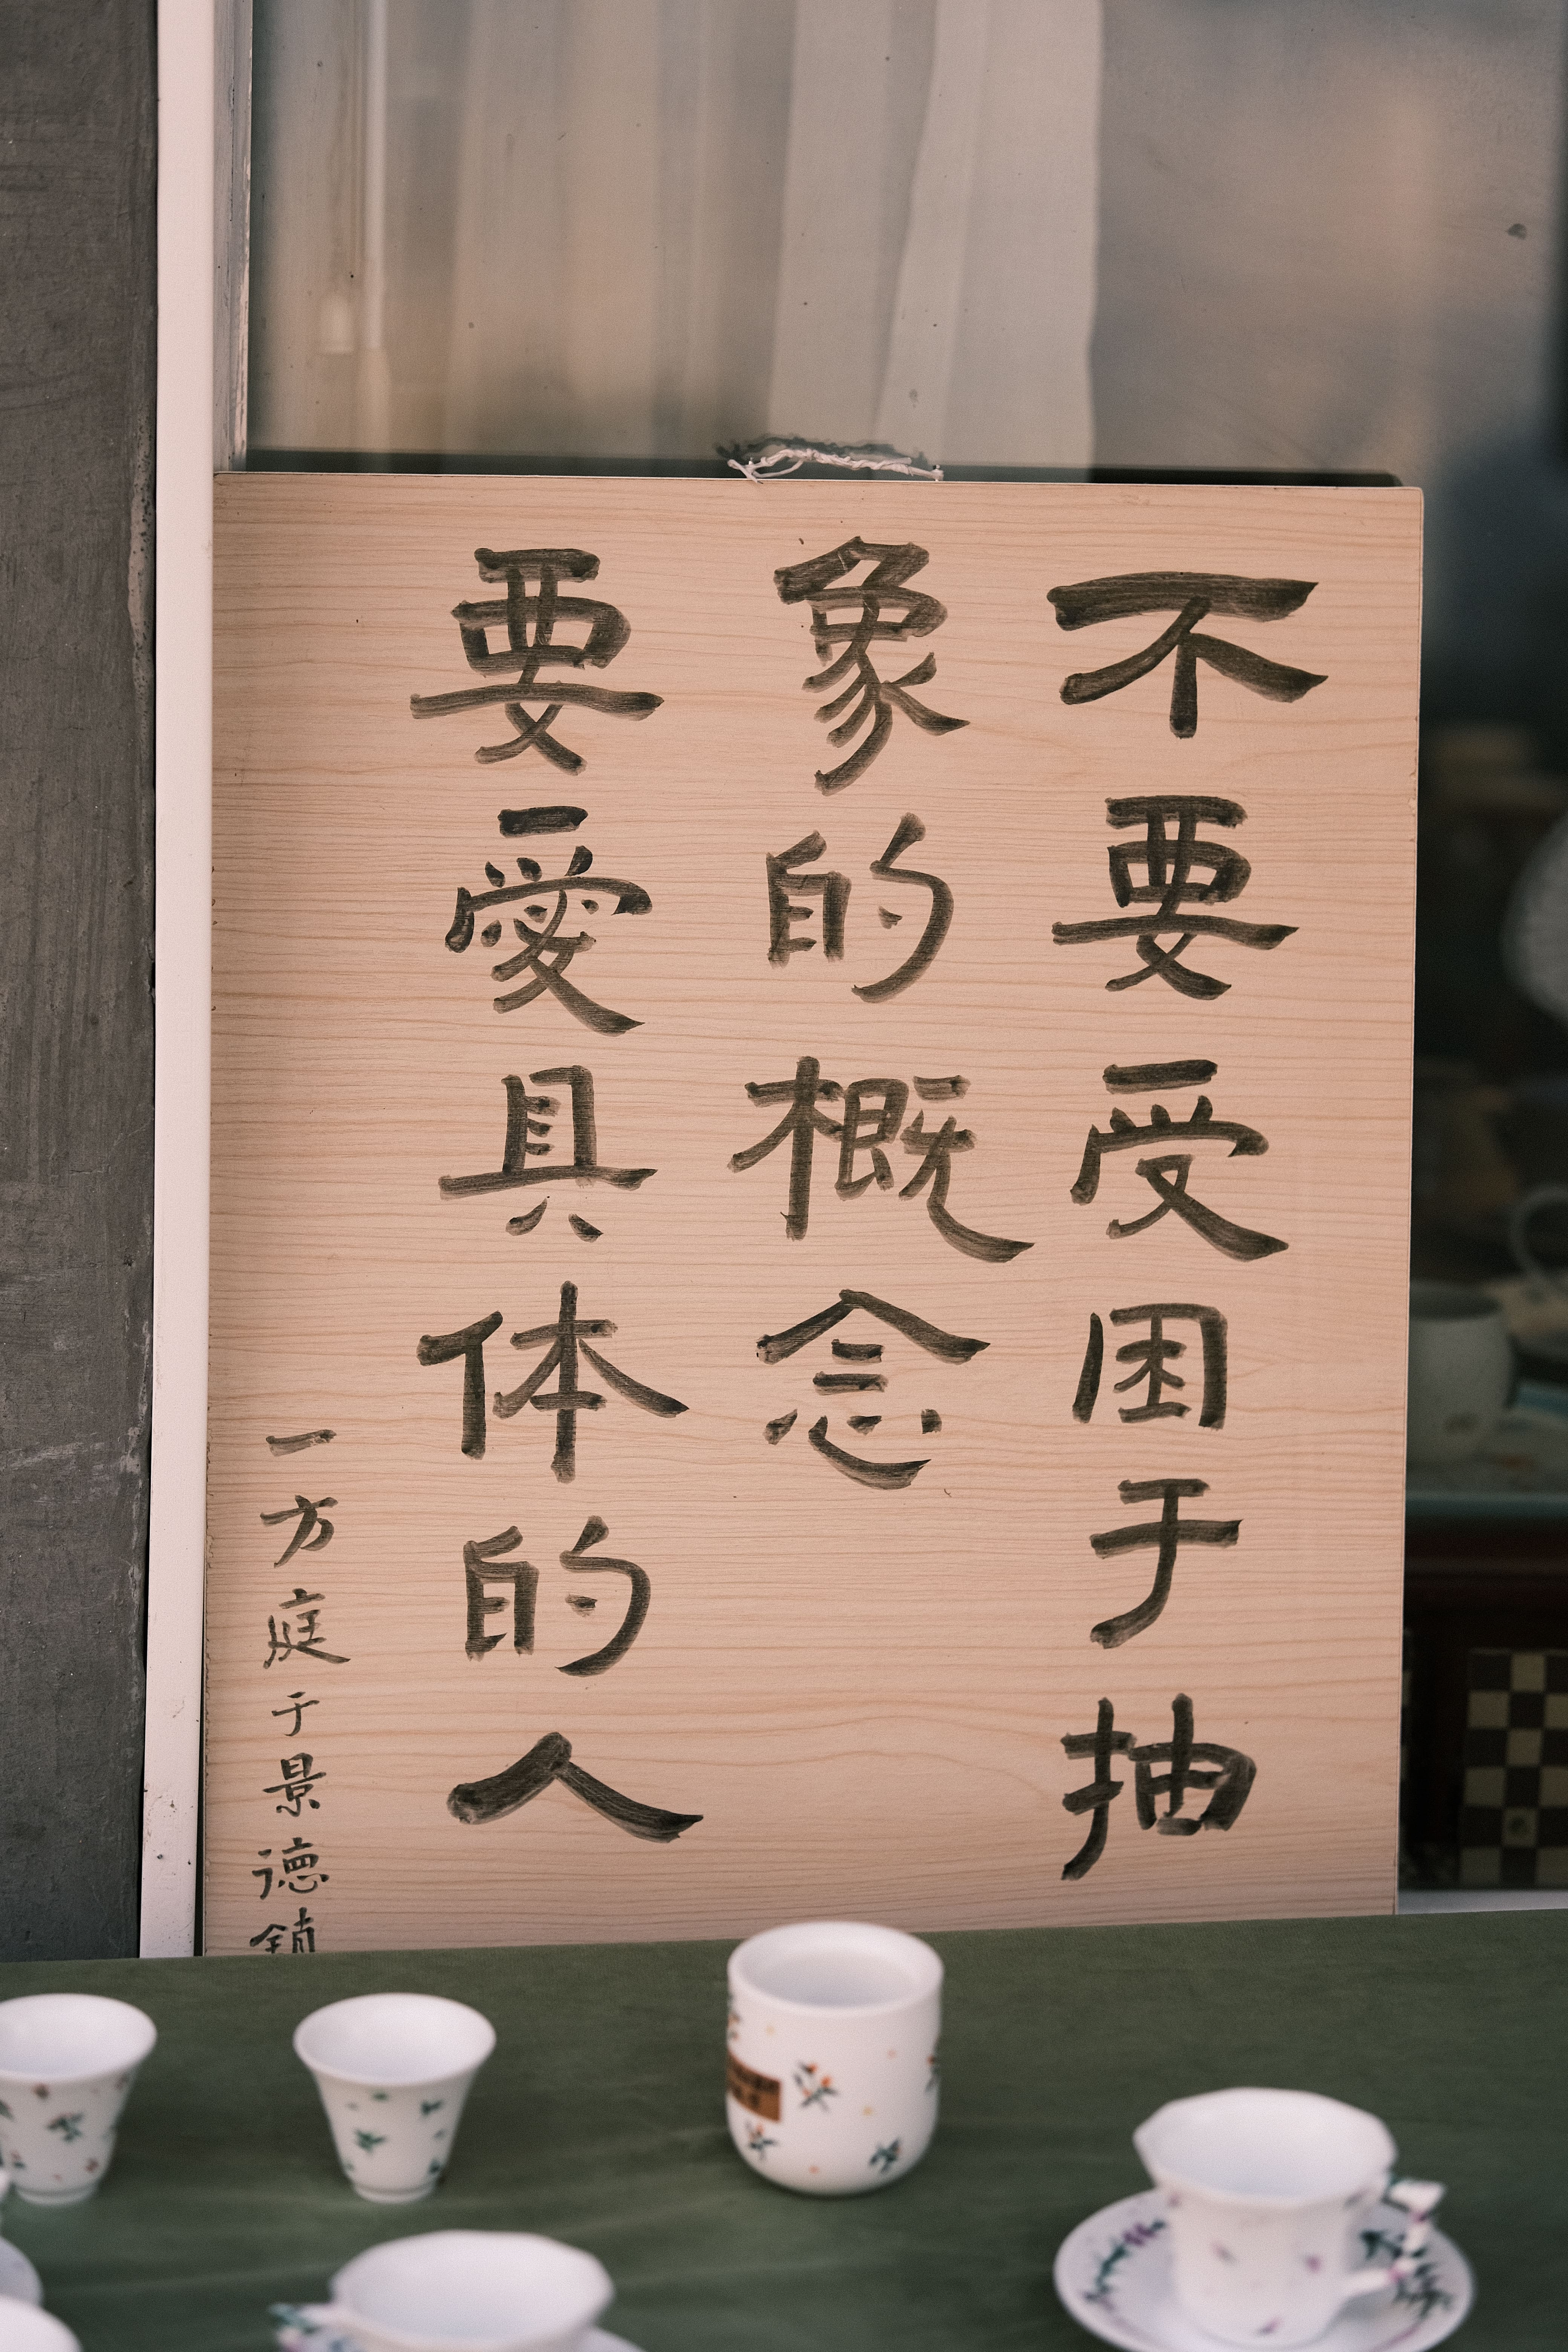 不要受困于抽
象的概念
要愛具体的人
一方庭于景德鎮